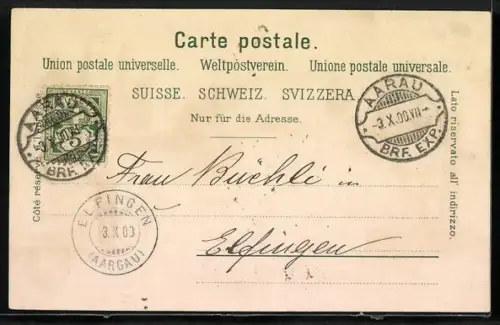 Carte postale.
Union postale universelle. Weltpostverein. Unione postale universale.
SUISSE. SCHWEIZ. SVIZZERA.
Nur für die Adresse.
Côté
Lato riservato all' indirizzo.
AARAU
BRF. EXP.
5
AARAU
-3.X.00.VII-
BRF. EXP.
Frau Büchli in
Elfingen
ELFINGEN
3.X.00
(AARGAU)